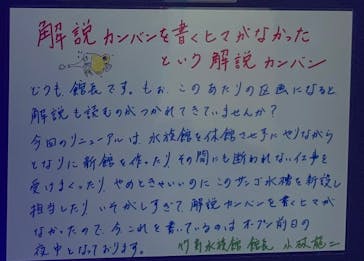 解説カンバンを書くヒマがなかった
という解説カンバン
どうも、館長です。もぉ、このあたりの区画になると
解説も読むのがつかれてきていませんか？
今回のリニューアルは、水族館を休館させずにやりながら
となりに新館を作ったり、その間にも断われない仕事を
受けまくったり、やめときゃいいのにこのサンゴ水槽を新設し
担当したり、いそがしすぎて解説カンバンを書くヒマが
なかったので、今これを書いているのはオープン前日の
夜中となっております。
竹島水族館 館長 小林龍二